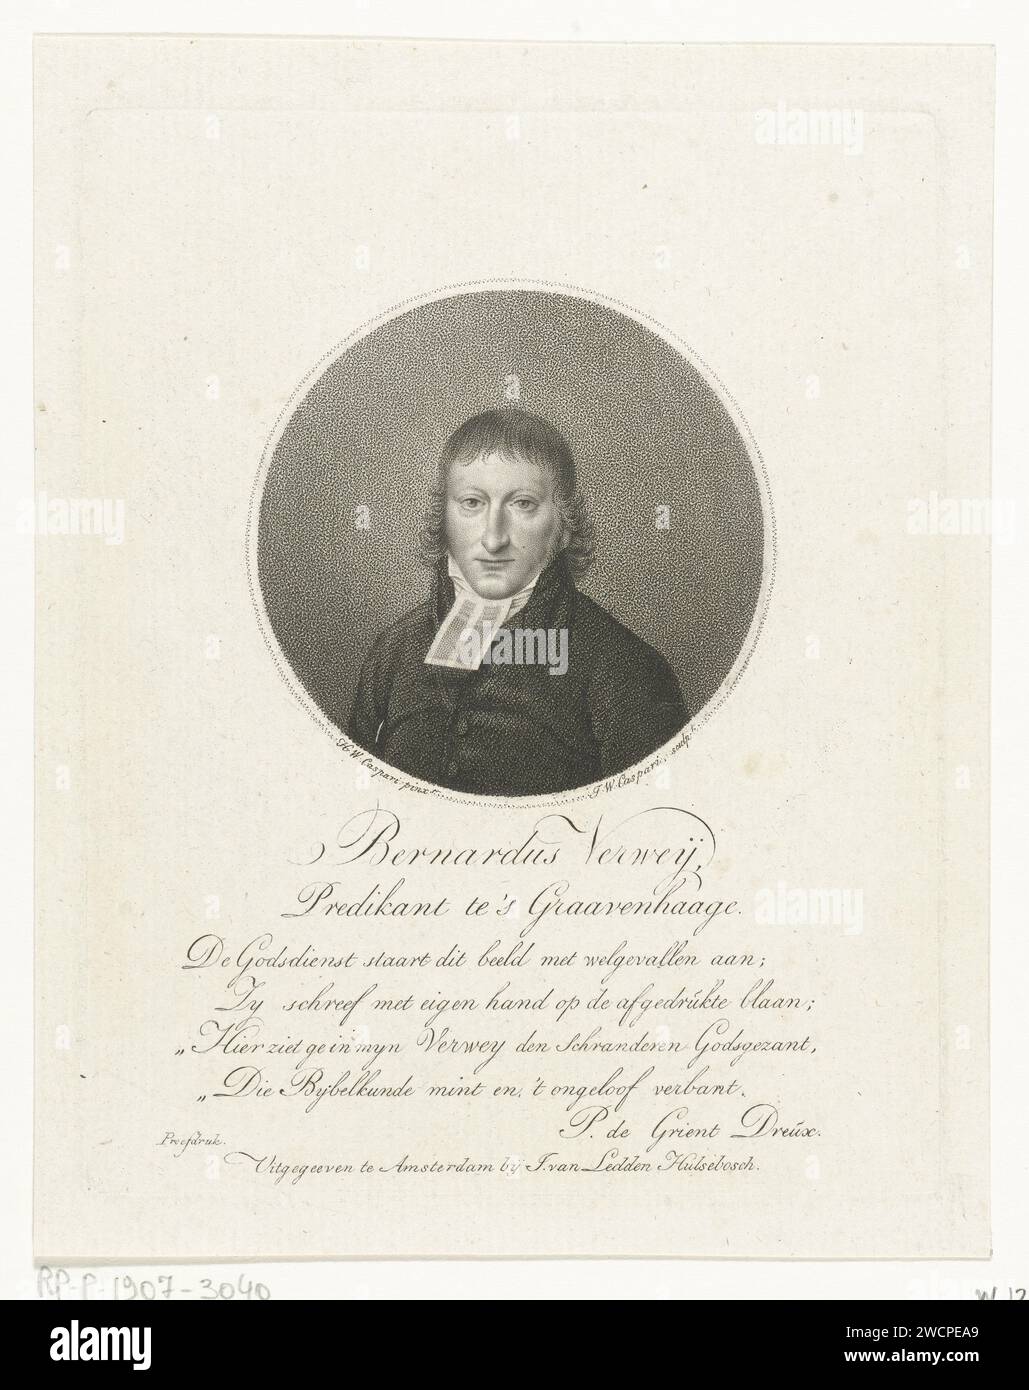 H.W. Caspari pinxt.
J.W. Caspari, sculpt.
Bernardus Verweÿ,
Predikant te 's Graavenhaage.
De Godsdienst staart dit beeld met welgevallen aan;
Zy schreef met eigen hand op de afgedrŭkte blaan;
„Hier ziet ge in myn Verwey den Schranderen Godsgezant,
„Die Bybelkunde mint en, 't ongeloof verbant.
P. de Grient Dreŭx.
Proefdruk.
Uitgegeeven te Amsterdam bÿ J. van Ledden Hulsebosch.
RP-P-1907-3040
W 12
alamy
Image ID: 2WCPEA9
www.alamy.com